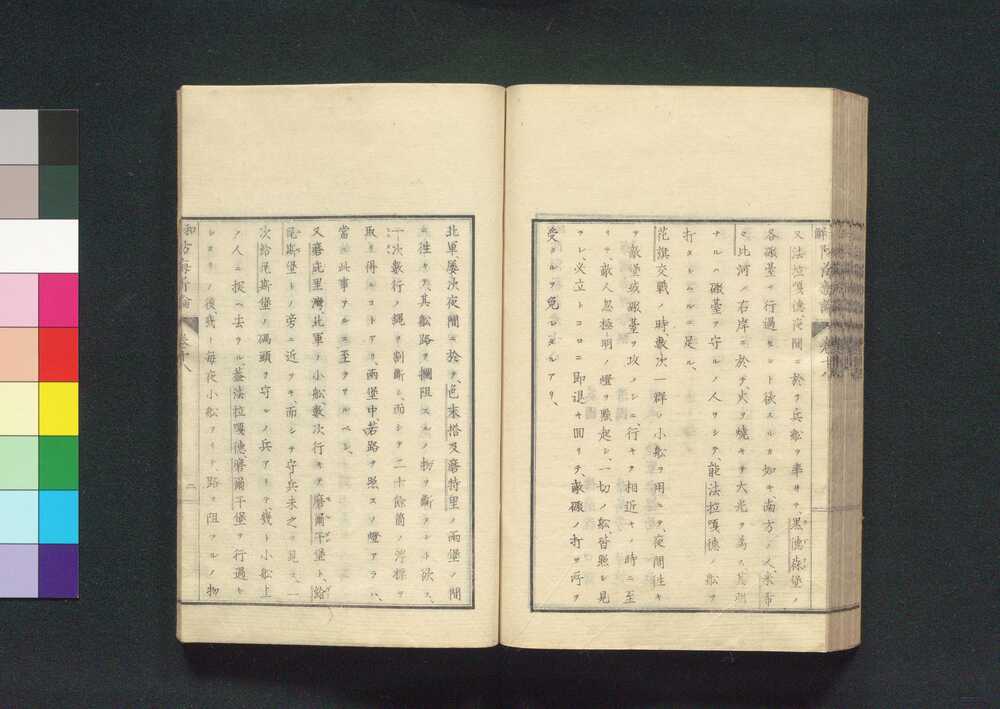 又法拉嘎徳夜間ニ於テ兵船ヲ率キテ、黒徳森堡ノ
各礟臺ヲ行過セント欲スルカ如キ、南方ノ人、米市
比河ノ右岸ニ於テ、火ヲ焼キテ大光ヲ為ス、其明
ナルハ礟臺ヲ守ルノ人ヲシテ、能法拉嘎徳ノ船ヲ
打タシムルニ足ル、
范旗交戦ノ時、數次一群ノ小船ヲ用ヰテ、夜間往キ
テ敵堡或礟臺ヲ攻メシニ、行キテ相近キノ時ニ至
リテ、敵人忽極明ノ燈ヲ點起シ、一切ノ船皆照シ見
ラレ、必立トコロニ即退キ回リテ、敵礟ノ打ツ所ヲ
受クルヲ免レタルアリ、
北軍屡次夜間ニ於テ、色末搭及磨特里ノ兩堡ノ間
ニ往キテ、其船路ヲ攔阻スルノ物ヲ斷タント欲ス、
一次數行ノ繩ヲ割斷シ、而シテ二十餘箇ノ浮標ヲ
取リ得ルコトアリ、兩堡中、若路ヲ照スノ燈アラハ、
當ニ此事ヲルニ至ラサルベシ、
又磨庇里灣、北軍ノ小船數次行キテ、磨爾干堡ト、給
尼斯堡トノ旁ニ近ツキ、而シテ守兵未之ヲ見ス、一
次給尼斯堡ノ碼頭ヲ守ルノ兵アリテ、幾ト小船上
ノ人ニ捉ヘ去ラル、蓋法拉嘎徳、磨爾干堡ヲ行過キ
ノ後、幾ト毎夜小船アリテ、路ヲ阻ツルノ物
二